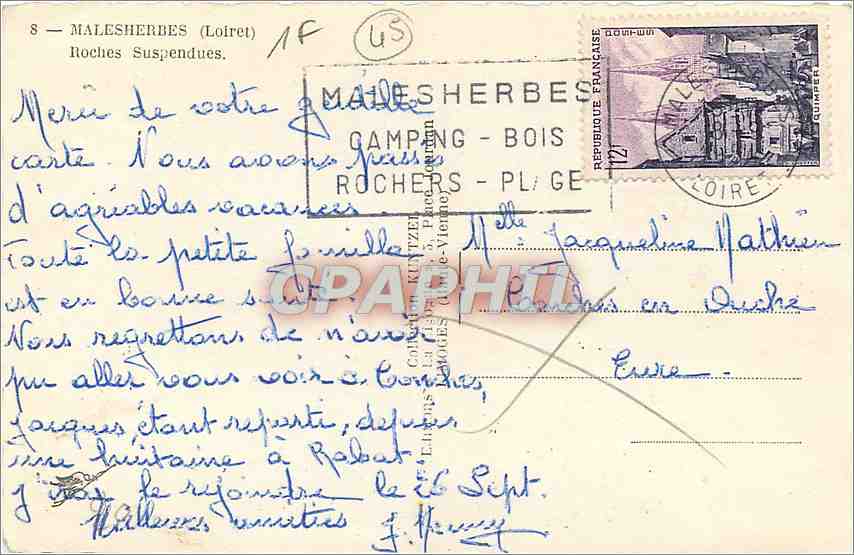 8 — MALESHERBES (Loiret)
Roches Suspendues.
1F
45
MALESHERBES
CAMPING - BOIS
ROCHERS - PL/GE
REPUBLIQUE FRANÇAISE
POSTES
12F
QUIMPER
LOIRE
Merci de votre gentille
carte. Nous avons passé
d'agréables vacances.
Toute la petite famille
est en bonne santé.
Nous regrettons de n'avoir
pu aller vous voir à Conches,
Jacques, étant reparti, depuis
une huitaine à Rabat.
J'irai le rejoindre le 26 Sept.
Meilleures amitiés
Collection KUNTZEL
5, Place Jourdan
LIMOGES (Haute-Vienne)
Melle Jacqueline Mathieu
Conches en Ouche
Eure -
CPARHTI